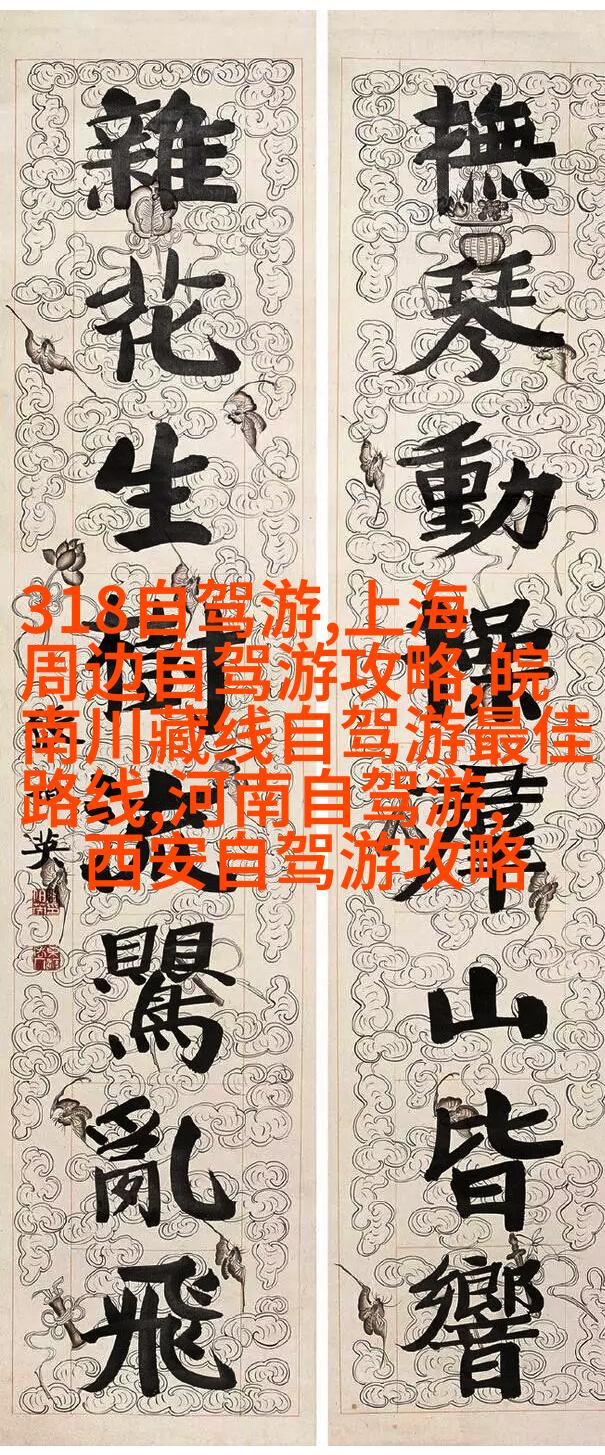 撫琴動操群山皆響
雜花生樹羣鸎亂飛
英
318自驾游,上海
周边自驾游攻略,皖
南川藏线自驾游最佳
路线,河南自驾游,
西安自驾游攻略